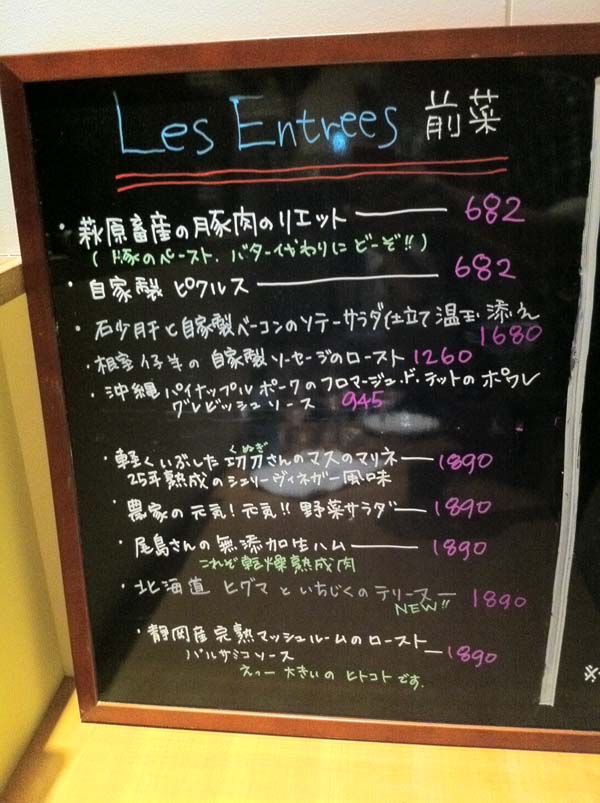 Les Entrees 前菜
・萩原畜産の豚肉のリエット — 682
(豚のペースト、バター代わりにどーぞ!!)
・自家製 ピクルス — 682
・砂肝と自家製ベーコンのソテーサラダ仕立て 温玉添え
1680
・相室仔羊の自家製ソーセージのロースト 1260
・沖縄パイナップルポークのフロマージュ・ド・テットのポワレ
グレビッシュソース 945
くぬぎ
・軽くいぶした切刀さんのマスのマリネ — 1890
25年熟成のシェリーヴィネガー風味
・農家の元気!元気!!野菜サラダ — 1890
・尾島さんの無添加生ハム — 1890
これぞ乾燥熟成肉
・北海道 ヒグマといちじくのテリーヌ — 1890
NEW!!
・静岡産完熟マッシュルームのロースト
バルサミコソース — 1890
えっー大きいのヒトコトです.
※